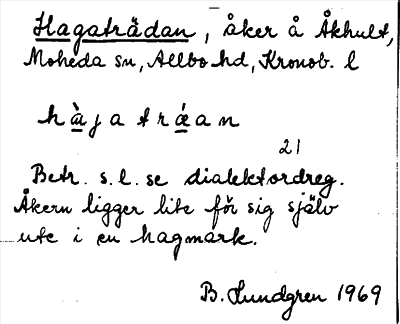 Hagaträdan, åker å Åkhult,
Moheda sn, Allbo hd, Kronob. l
hàjatráan
21
Betr. s.l. se dialektordreg.
Åkern ligger lite för sig själv
ute i en hagmark.
B. Lundgren 1969